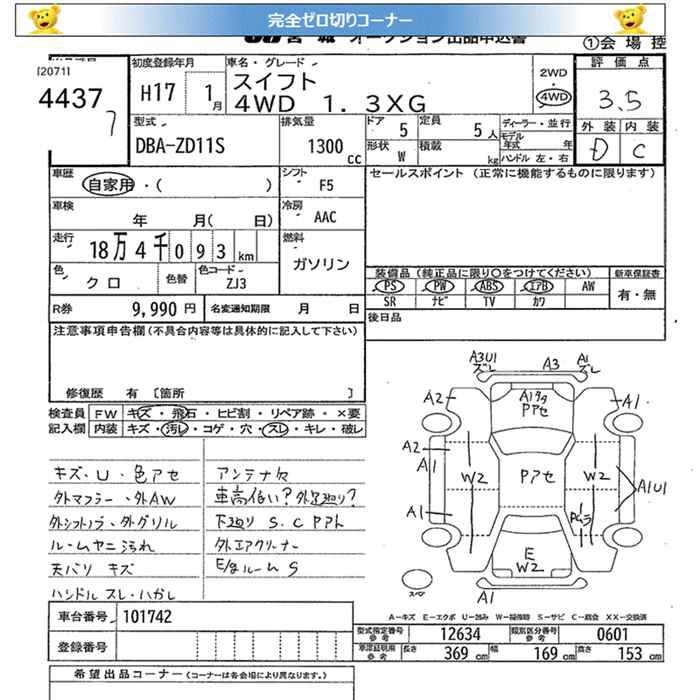 完全ゼロ切りコーナー
オークション出品申込書
①会 場 控
[2071]
4437
7
初度登録年月
H17
1月
車名・グレード
スイフト
4WD 1.3XG
2WD
4WD
評 価 点
3.5
外 装 内 装
D C
型式
DBA-ZD11S
排気量
1300 cc
ドア 5
定員 5人
形状 W
積載 kg
ディーラー・並行
モデル年式 年
ハンドル 左・右
車歴
自家用・( )
シフト F5
セールスポイント (正常に機能するものに限ります)
車検
年 月( 日)
冷房 AAC
走行
18万4千093km
燃料
ガソリン
色 クロ
色替
色コード ZJ3
装備品 (純正品に限り○をつけてください)
新車保証書
PS PW ABS エアB AW
SR ナビ TV カワ
有・無
R券 9,990 円
名変通知期限 月 日
後日品
注意事項申告欄(不具合内容等は具体的に記入して下さい)
修復歴 有 〔箇所 〕
検査員 FW キズ・飛石・ヒビ割・リペア跡・×要
記入欄 内装 キズ・汚レ・コゲ・穴・スレ・キレ・破レ
キズ、U・色アセ
アンテナ欠
外マフラー、外AW
車高低い?外足廻り?
外シフトノブ、外グリル
下廻り S、C Pアト
ルームヤニ汚れ
外エアクリーナー
天バリ キズ
E/gルーム S
ハンドル スレ・ハガレ
A3U1
ズレ
A3
A1
ズレ
A2
A1
A1タタ
Pアセ
A2
A1
W2
Pアセ
W2
A1U1
A1
Pムラ
E
W2
スペア
A1
A-キズ E-エクボ U-凹み W-補修跡 S-サビ C-腐食 XX-交換済
車台番号 101742
登録番号
型式指定番号 参考 12634
類別区分番号 参考 0601
車検証明用 参考 長さ 369 cm
幅 169 cm
高さ 153 cm
希望出品コーナー (コーナーは各会場により異なります。)